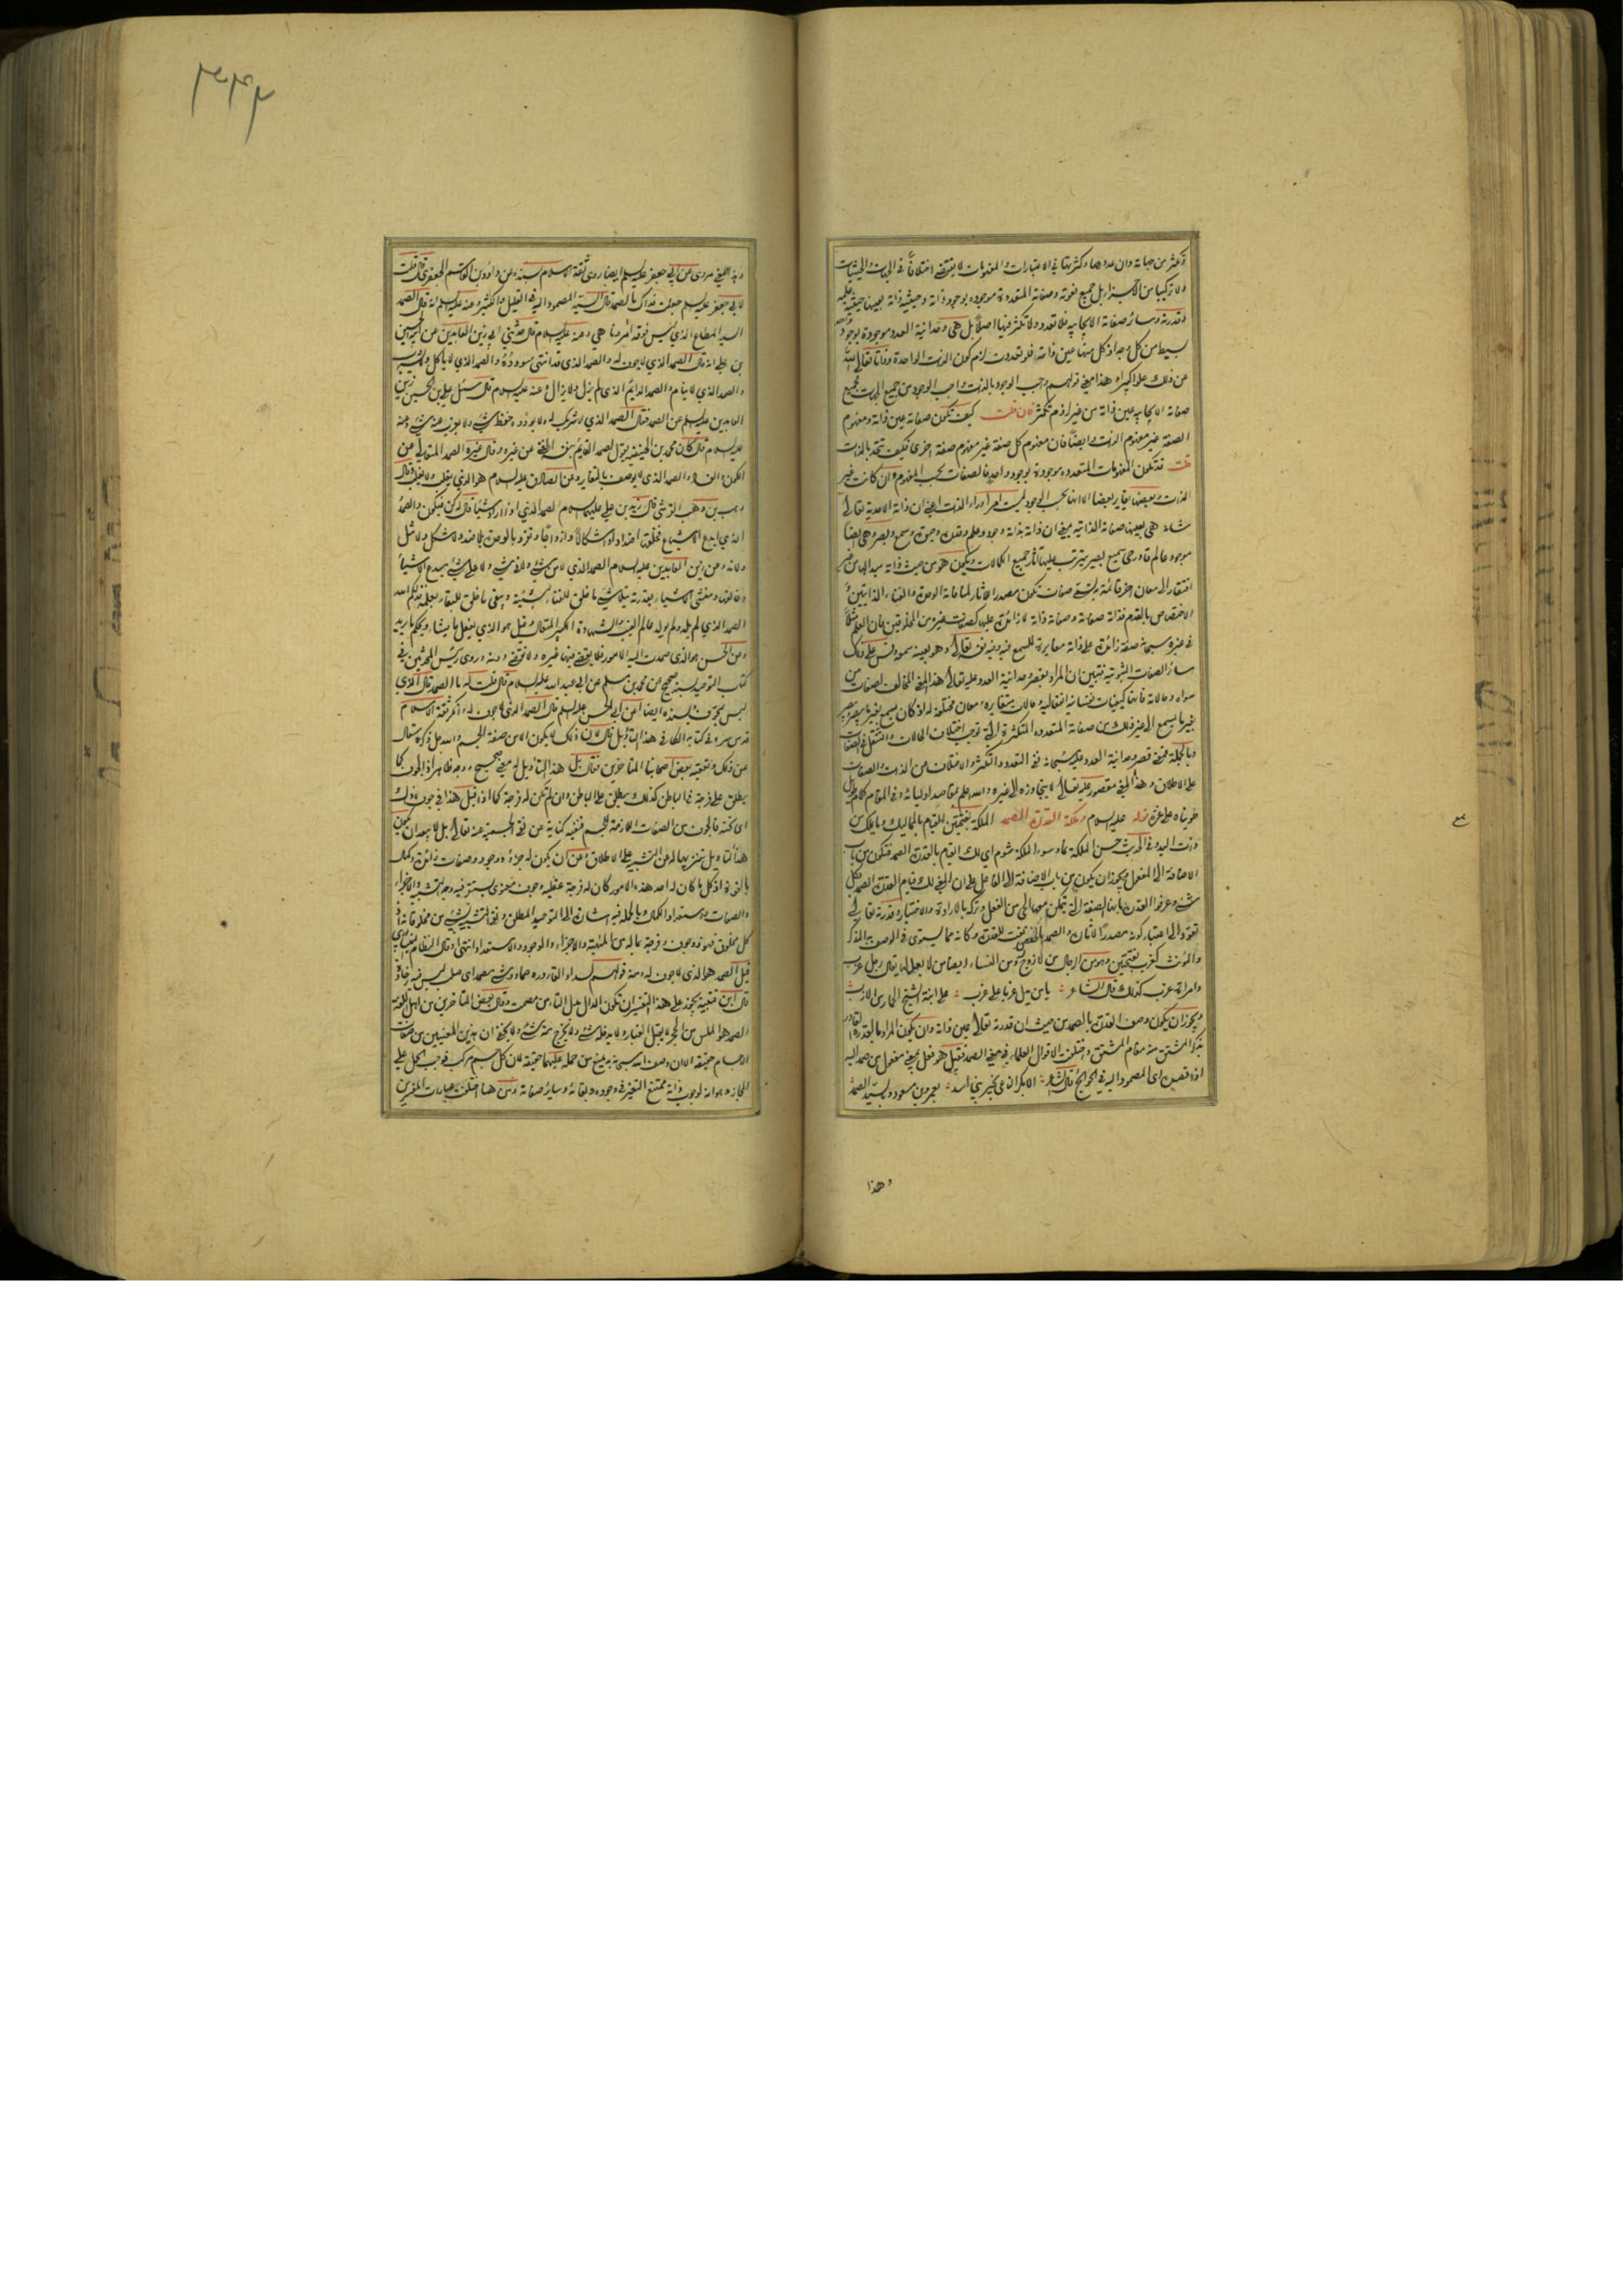 وتكثر من جهاته وان عددها وكثرتها في الاعتبارات والمفهومات لا يقتضي اختلافاً في الجهات والحيثيات
ولا تركيبا من الاجزاء بل جميع نعوته وصفاته المتعددة موجودة بوجود ذاته وحيثية ذاته بعينها حيثية علمه
وقدرته وسائر صفاته الايجابية فلا تعدد ولا تكثر فيها اصلاً بل هي وحدانية العدد موجودة بوجود واحد
بسيط من كل وجه اذ كل منها عين ذاته فلو تعددت لزم كون الذات الواحدة ذواتا تعالى الله
عن ذلك علوا كبيرا وهذا معنى قولهم واجب الوجود بالذات واجب الوجود من جميع الجهات فجميع
صفاته الايجابية عين ذاته من غير لزوم تكثر فان قلت كيف تكون صفاته عين ذاته ومفهوم
الصفة غير مفهوم الذات وايضاً فان مفهوم كل صفة غير مفهوم صفة اخرى فكيف تتحد بالذات
قلت قد تكون المفهومات المتعددة موجودة بوجود واحد فالصفات بحسب المفهوم وان كانت غير
الذات وبعضها يغاير بعضا الا انها بحسب الوجود ليست امراً وراء الذات اعني ان ذاته الاحدية تعالى
شانه هي بعينها صفاته الذاتية بمعنى ان ذاته بذاته وجود وعلم وقدرة وحيوة وسمع وبصر وهي ايضا
موجود عالم قادر حي سميع بصير يترتب عليها آثار جميع الكمالات ويكون هو من حيث ذاته مبدأ لها من غير
افتقار الى معان اخر قائمة به تسمى صفات تكون مصدرا للآثار لمنافاته الوحدة والغناء الذاتيين و
الاختصاص بالقدم فذاته صفاته وصفاته ذاته لا زائدة عليها كصفات غيره من المخلوقين فان العلم مثلاً
في غيره سبحانه صفة زائدة على ذاته مغايرة للسمع فيه وفيه نفسه تعالى وهو بعينه سمعه وقس على ذلك
سائر الصفات الثبوتية فتبين ان المراد بقصر وحدانية العدد عليه تعالى هذا المعنى المخالف لصفات من
سواه وحالاته فانها كيفيات نفسانية انفعالية وحالات متغايرة ومعان مختلفة له اذ كان يسمع بغير ما يبصر ويبصر
بغير ما يسمع الى غير ذلك من صفاته المتعددة المتكثرة التي توجب اختلاف الحالات والتنقل في الصفات
وبالجملة فمعنى قصر وحدانية العدد عليه سبحانه نفي التعدد والتكثر والاختلاف عن الذات والصفات
على الاطلاق وهذا المعنى مقصور عليه تعالى لا يتجاوزه الى غيره والله اعلم بمقاصد اوليائه وفي المقام كلام طويل
طويناه على غرة قوله عليه السلام وملكة القدرة الصمد الملكة بفتحتين القيام بالمماليك وما يملك من
ذات اليد وفي الحديث حسن الملكة نماء وسوء الملكة شوم اي لك القيام بالقدرة الصمد فتكون من باب
الاضافة الى المفعول ويجوز ان يكون من باب الاضافة الى الفاعل على ان المعنى لك قيام القدرة الصمد بكل
شيء وعرفوا القدرة بانها الصفة التي يتمكن معها الحي من الفعل وتركه بالارادة والاختيار وقدرته تعالى
تعود الى اعتبار كونه مصدراً لآثاره والصمد بالخفض نعت للقدرة وكانه مما يستوي في الوصف به المذكر
والمؤنث كعزب بفتحتين وهو من الرجال من لا زوج له ومن النساء ايضا من لا بعل لها يقال رجل عزب
وامراة عزب كذلك قال الشاعر يا من يدل عزبا على عزب على ابنة الشيخ الحارس الازب
ويجوز ان يكون وصف القدرة بالصمد من حيث ان قدرته تعالى عين ذاته وان يكون المراد بالقدرة القادر
بذكر المشتق منه مقام المشتق واختلفت الاقوال العلماء في معنى الصمد فقيل هو فعل بمعنى مفعول من صمد اليه
اذا قصده اي المصمود اليه في الحوائج قال الشاعر الا بكر الناعي بخير بني اسد بعمرو بن مسعود وبالسيد الصمد
وهذا
وبهذا المعنى مروى عن ابي جعفر عليه السلم ايضا روى ثقة الاسلام بسنده عن داود بن القاسم الجعفري قال قلت
لابي جعفر عليه السلم جعلت فداك ما الصمد قال السيد المصمود اليه في القليل والكثير وعنه عليه السلم انه قال الصمد
السيد المطاع الذي ليس فوقه آمر وناهي وعنه عليه السلام قال حدثني ابي زين العابدين عن ابيه الحسين
بن علي انه قال الصمد الذي لا جوف له والصمد الذي قد انتهى سودده والصمد الذي لا ياكل ولا يشرب
والصمد الذي لا ينام والصمد الدايم الذي لم يزل ولا يزال وعنه عليه السلام قال سئل علي بن الحسين زين
العابدين عليه السلم عن الصمد فقال الصمد الذي لا شريك له ولا يوده حفظ شيء ولا يعزب عنه شيء وعنه
عليه السلام قال كان محمد بن الحنفية يقول الصمد القايم بنفسه الغني عن غيره وقال غيره الصمد المتعالي عن
الكون والفساد والصمد الذي لا يوصف بالتغاير وعن الصادق عليه السلام هو الذي يغلب ولا يغلب وقال
وهب بن وهب القرشي قال زيد بن علي عليهما السلام الصمد الذي اذا اراد شيئا قال له كن فيكون والصمد
الذي ابدع الاشياء فخلقها اضدادا واشكالا وازواجا وتفرد بالوحدة بلا ضد ولا شكل ولا مثل
ولا ند وعن زين العابدين عليه السلام الصمد الذي لا من شيء ولا في شيء ولا على شيء مبدع الاشياء
وخالقها ومنشئ الاشياء بقدرته يتلاشى ما خلق للفناء بمشيئته ويبقى ما خلق للبقاء بعلمه فذلكم الله
الصمد الذي لم يلد ولم يولد عالم الغيب والشهادة الكبير المتعال وقيل هو الذي يفعل ما يشاء ويحكم ما يريد
وعن الحسن هو الذي صمدت اليه الامور فلا يقضي فيها غيره ولا تقضى دونه وروى رئيس المحدثين في
كتاب التوحيد بسند صحيح عن محمد بن مسلم عن ابي عبد الله عليه السلام قال قلت له ما الصمد قال الذي
ليس بمجوف وبسنده ايضا عن ابي الحسن عليه السلم قال الصمد الذي لا جوف له وانكر ثقة الاسلام
قدس سره في كتابه الكافي هذا التأويل قال لان ذلك لا يكون الا من صفة الجسم والله جل ذكره متعال
عن ذلك وتعقبه بعض اصحابنا المتاخرين فقال بل هذا التأويل له معنى صحيح ووجه ظاهر اذ الجوف كما
يطلق على فرجة في الباطن كذلك يطلق على الباطن وان لم تكن له فرجة كما اذا قيل هذا في جوف ذلك
اي تحته فالجوف من الصفات اللازمة للجسم فنفيه كناية عن نفي الجسمية عنه تعالى بل لا يبعد ان يكون
هذا تاويل تنزيها له عن التشبيه على الاطلاق وعن ان يكون له جزء ووجود وصفات زائدة وكمال
بالقوة اذ كل ما كان له احد هذه الامور كان له فرجة عقلية وجوف معنوي يستقر فيه وجه التشبيه والاجزاء
والصفات واستعداد الكمال وبالجملة فيه اشارة الى التوحيد المطلق ونفي التشبيه بشيء من مخلوقاته اذ
كل مخلوق فهو ذو جوف وفرجة بما له من المثلية والاجزاء والوجود والاستعداد انتهى وقال النظام النيسابوري
قيل الصمد هو الذي لا جوف له ومنه قولهم لسداد القارورة صماد وشيء مصمد اي صلب ليس فيه رخاوة
قال ابن قتيبة يجوز على هذا التفسير ان تكون الدال بدل التاء من مصمت وقال بعض المتاخرين من اهل اللغة
الصمد هو الاملس من الحجر لا يقبل الغبار ولا يدخله شيء ولا يخرج منه شيء ولا يخفى ان هذين المعنيين من صفات
الاجسام حقيقة الا ان وصف الله سبحانه به يمنع من حمله عليهما حقيقة لان كل جسم مركب فوجب الحمل على
المجاز وهو انه لوجوب ذاته ممتنع التغير في وجوده وبقائه وسائر صفاته ومن هنا اختلفت عبارات المفسرين